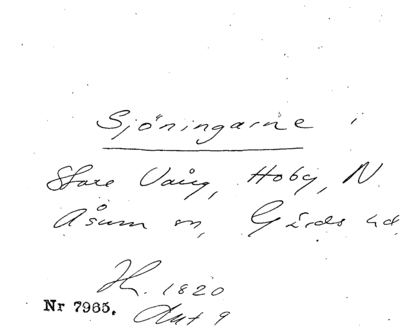 Sjöningarne i
Store Vång, Hoby, N.
Åsum sn, Gärds hd
H. 1820
Nr 7965. Akt 9